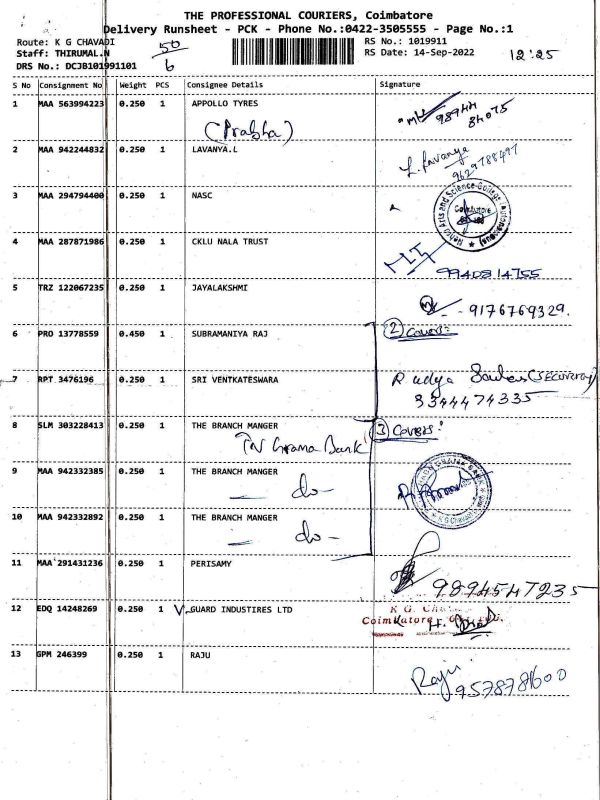 THE PROFESSIONAL COURIERS, Coimbatore
Delivery Runsheet - PCK - Phone No.:0422-3505555 - Page No.:1
Route: K G CHAVADI
50
RS No.: 1019911
Staff: THIRUMAL.N
RS Date: 14-Sep-2022
12:25
DRS No.: DCJB101991101
6
S No Consignment No Weight PCS Consignee Details Signature
1 MAA 563994223 0.250 1 APPOLLO TYRES
(Prabha)
98944
84075
2 MAA 942244832 0.250 1 LAVANYA.L
L. Lavanya
9629788497
3 MAA 294794400 0.250 1 NASC
Nehru Arts and Science College (Autonomous)
Coimbatore
4 MAA 287871986 0.250 1 CKLU NALA TRUST
9940814755
5 TRZ 122067235 0.250 1 JAYALAKSHMI
9176769329.
6 PRO 13778559 0.450 1 SUBRAMANIYA RAJ
2 Covers:
7 RPT 3476196 0.250 1 SRI VENTKATESWARA
(SECURITY)
9344474335
8 SLM 303228413 0.250 1 THE BRANCH MANGER
TN Grama Bank
3 Covers:
9 MAA 942332385 0.250 1 THE BRANCH MANGER
— do —
10 MAA 942332892 0.250 1 THE BRANCH MANGER
— do —
11 MAA 291431236 0.250 1 PERISAMY
9894547235
12 EDQ 14248269 0.250 1 GUARD INDUSTIRES LTD
K G. 
Coimbatore
13 GPM 246399 0.250 1 RAJU
Raju
9578781600